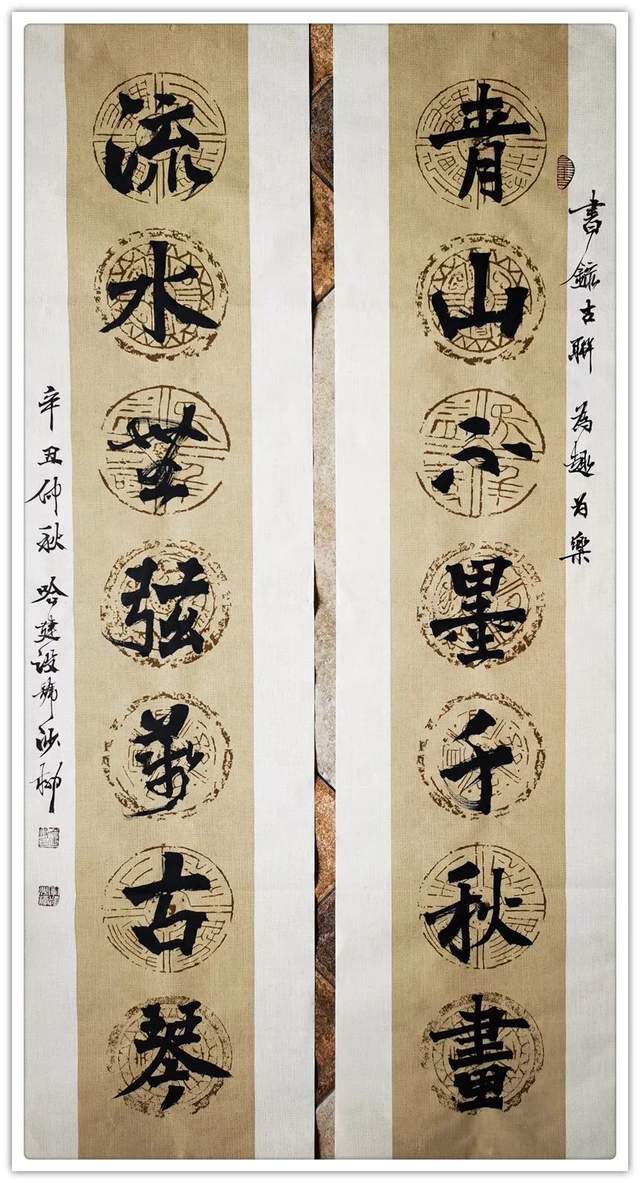 青山不墨千秋畫
書錄古聯 為趣為樂
流水無弦萬古琴
辛丑仲秋 哈建設號沙柳